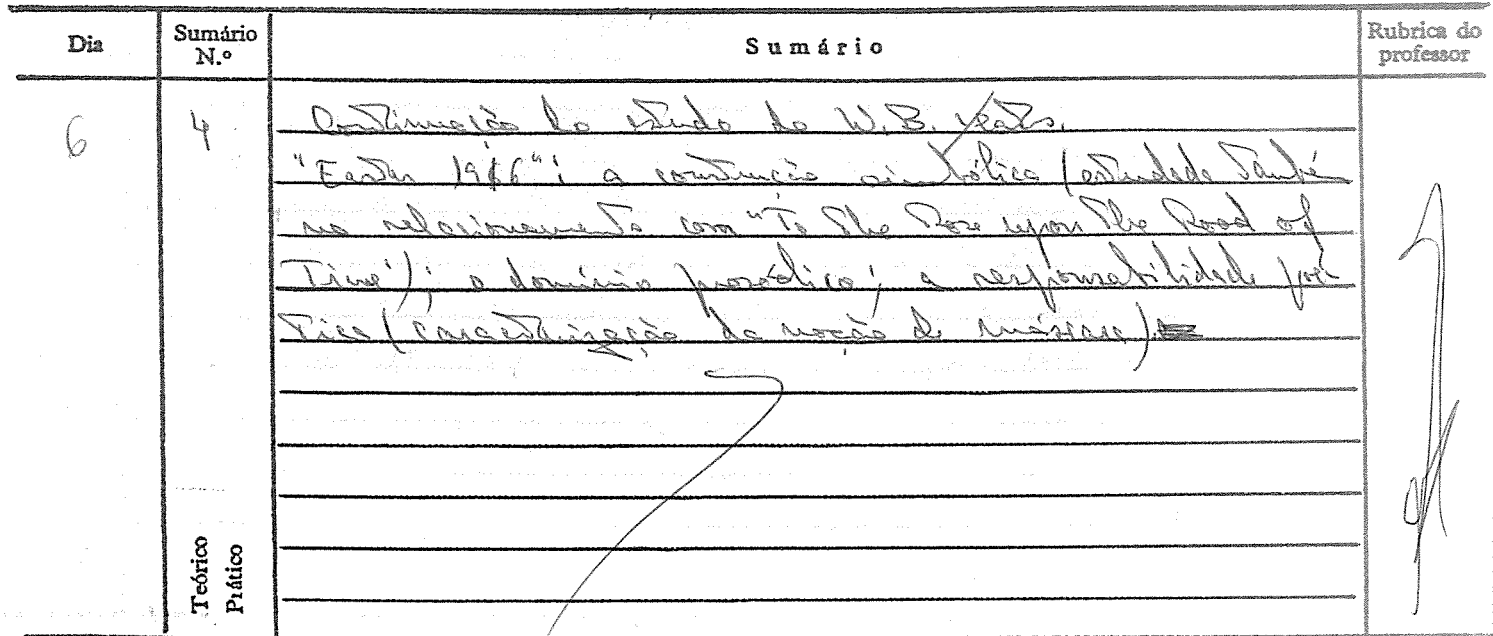 Dia
Sumário N.º
Sumário
Rubrica do professor
6
4
Continuação do estudo de W.B. Yeats.
"Easter 1916": a construção simbólica (estudada também
no relacionamento com "To the Rose upon the Rood of
Time"); o domínio prosódico; a responsabilidade poé-
tica (caracterização da noção de máscara).
Teórico
Prático